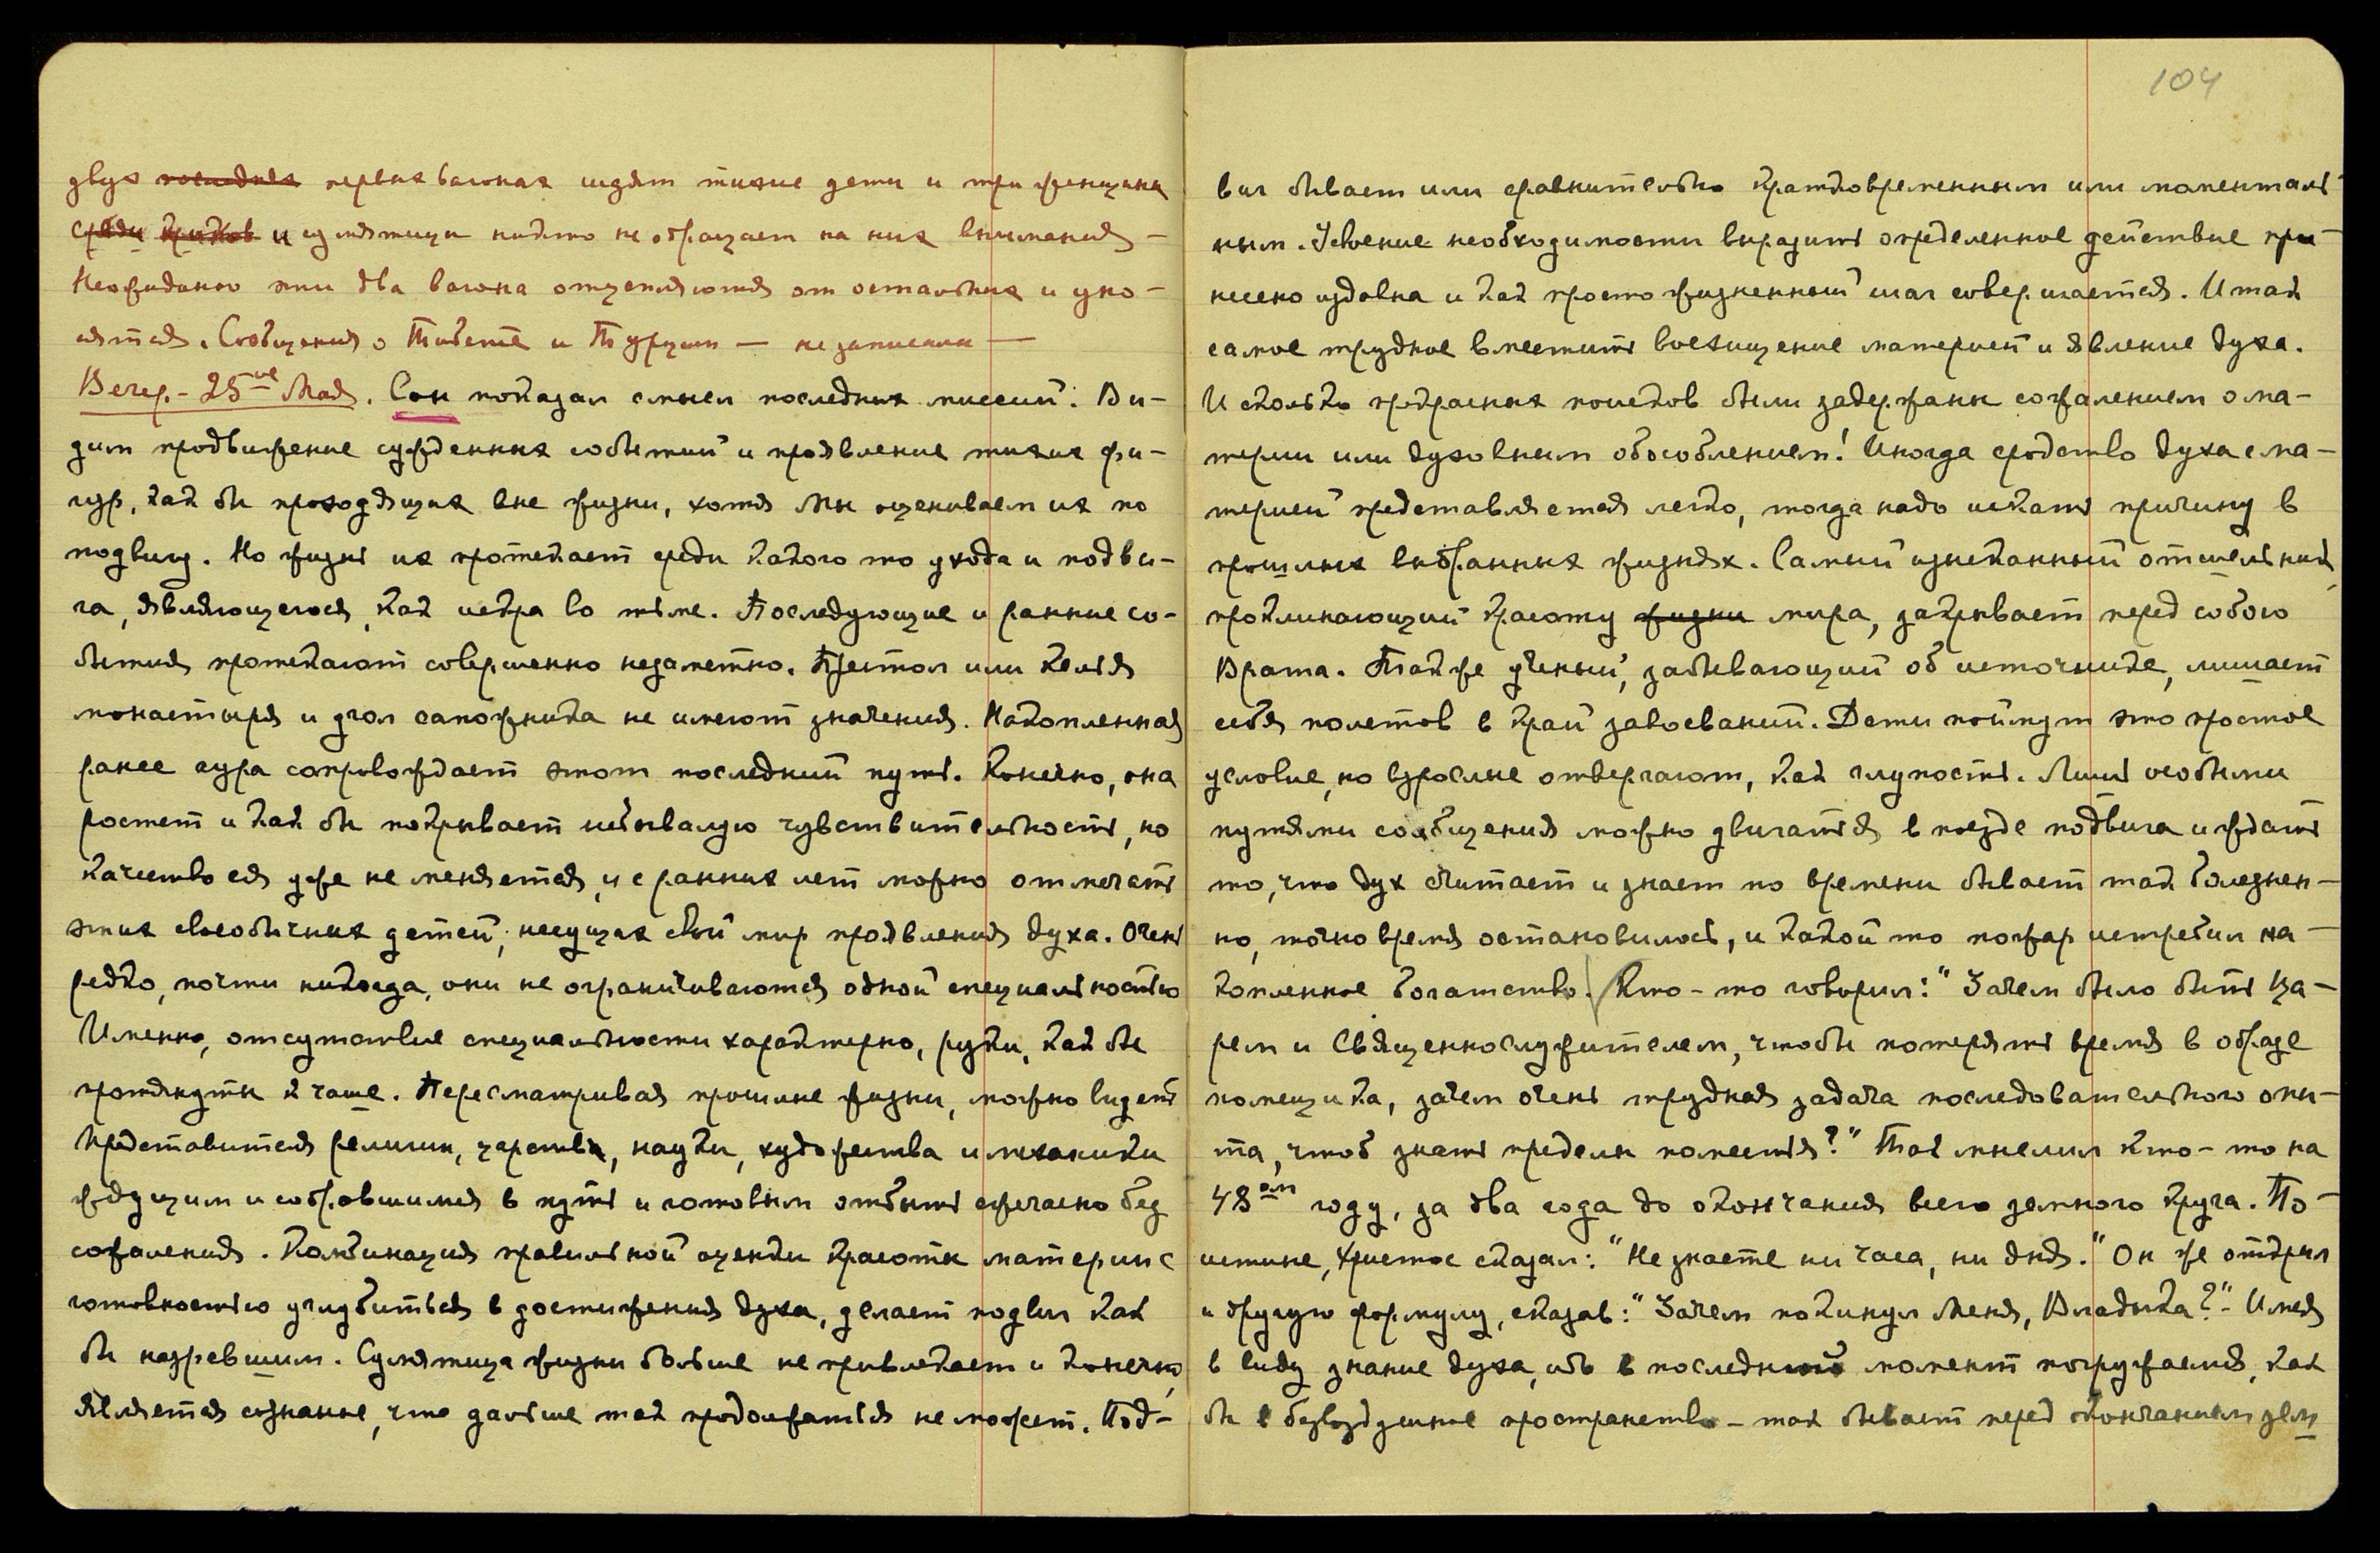 двух последних первых вагонах сидят тихие дети и три женщины
среди криков и сумятицы никто не обращает на них внимания —
Неожиданно эти два вагона отцепляются от остальных и уно-
сятся. Сообщения о Тибете и Турции — не записаны —
Вечер. - 25ое Мая. Сон показал смысл последних миссий. Ви-
дим продвижение сужденных событий и проявление тихих фи-
гур, как бы проходящих вне жизни, хотя мы оцениваем их по
подвигу. Но жизнь их протекает среди какого то ухода и подви-
га, являющегося, как искра во тьме. Последующие и ранние со-
бытия протекают совершенно незаметно. Престол или келья
монастыря и угол сапожника не имеют значения. Накопленная
ранее аура сопровождает этот последний путь. Конечно, она
ростет и как бы покрывает небывалую чувствительность, но
качество ея уже не меняется, и с ранних лет можно отмечать
этих своеобычных детей, несущих свой мир проявления духа. Очень
редко, почти никогда, они не ограничиваются одной специальностью
Именно, отсутствие специальности характерно, руки, как бы
протянуты к чаше. Пересматривая прошлые жизни, можно видеть
представителя религии, царства, науки, художества и механики
ждущим и собравшимся в путь и готовым отбыть ежечасно без
сожаления. Комбинация правильной оценки красоты материи с
готовностью углубиться в достижения духа, делает подвиг как
бы назревшим. Сумятица жизни больше не привлекает и конечно,
является сознание, что дальше так продолжаться не может. Под-
104
виг бывает или сравнительно кратковременным или моменталь-
ным. Усвоение необходимости выразить определенное действие при-
несено издавна и как просто жизненный шаг совершается. И так
самое трудное вместить восхищение материей и явление духа.
И сколько прекрасных поисков были задержаны сожалением о ма-
терии или духовным обособлением! Иногда сродство духа с ма-
терией представляется легко, тогда надо искать причину в
прошлых выбранных жизнях. Самый изысканный отшельник,
проклинающий красоту жизни мира, закрывает перед собою
Врата. Также ученый, забывающий об источнике, лишает
себя полетов в край завоеваний. Дети поймут это простое
условие, но взрослые отвергают, как глупость. Лишь особыми
путями сообщения можно двигаться в поезде подвига и ждать
то, что дух считает и знает по времени бывает так болезнен-
но, точно время остановилось, и какой то пожар истребил на-
копленное богатство. Кто-то говорил: "Зачем было быть Ца-
рем и Священнослужителем, чтобы потерять время в образе
помещика, зачем очень трудная задача последовательного опы-
та, чтоб знать пределы поместья?" Так мыслил кто-то на
48ом году, за два года до окончания всего земного круга. По-
истине, Христос сказал: "Не знаете ни часа, ни дня." Он же открыл
и другую формулу, сказав: "Зачем покинул Меня, Владыка?" - Имея
в виду знание духа, ибо в последний момент погружаемся, как
бы в безвоздушное пространство - так бывает перед окончанием зем